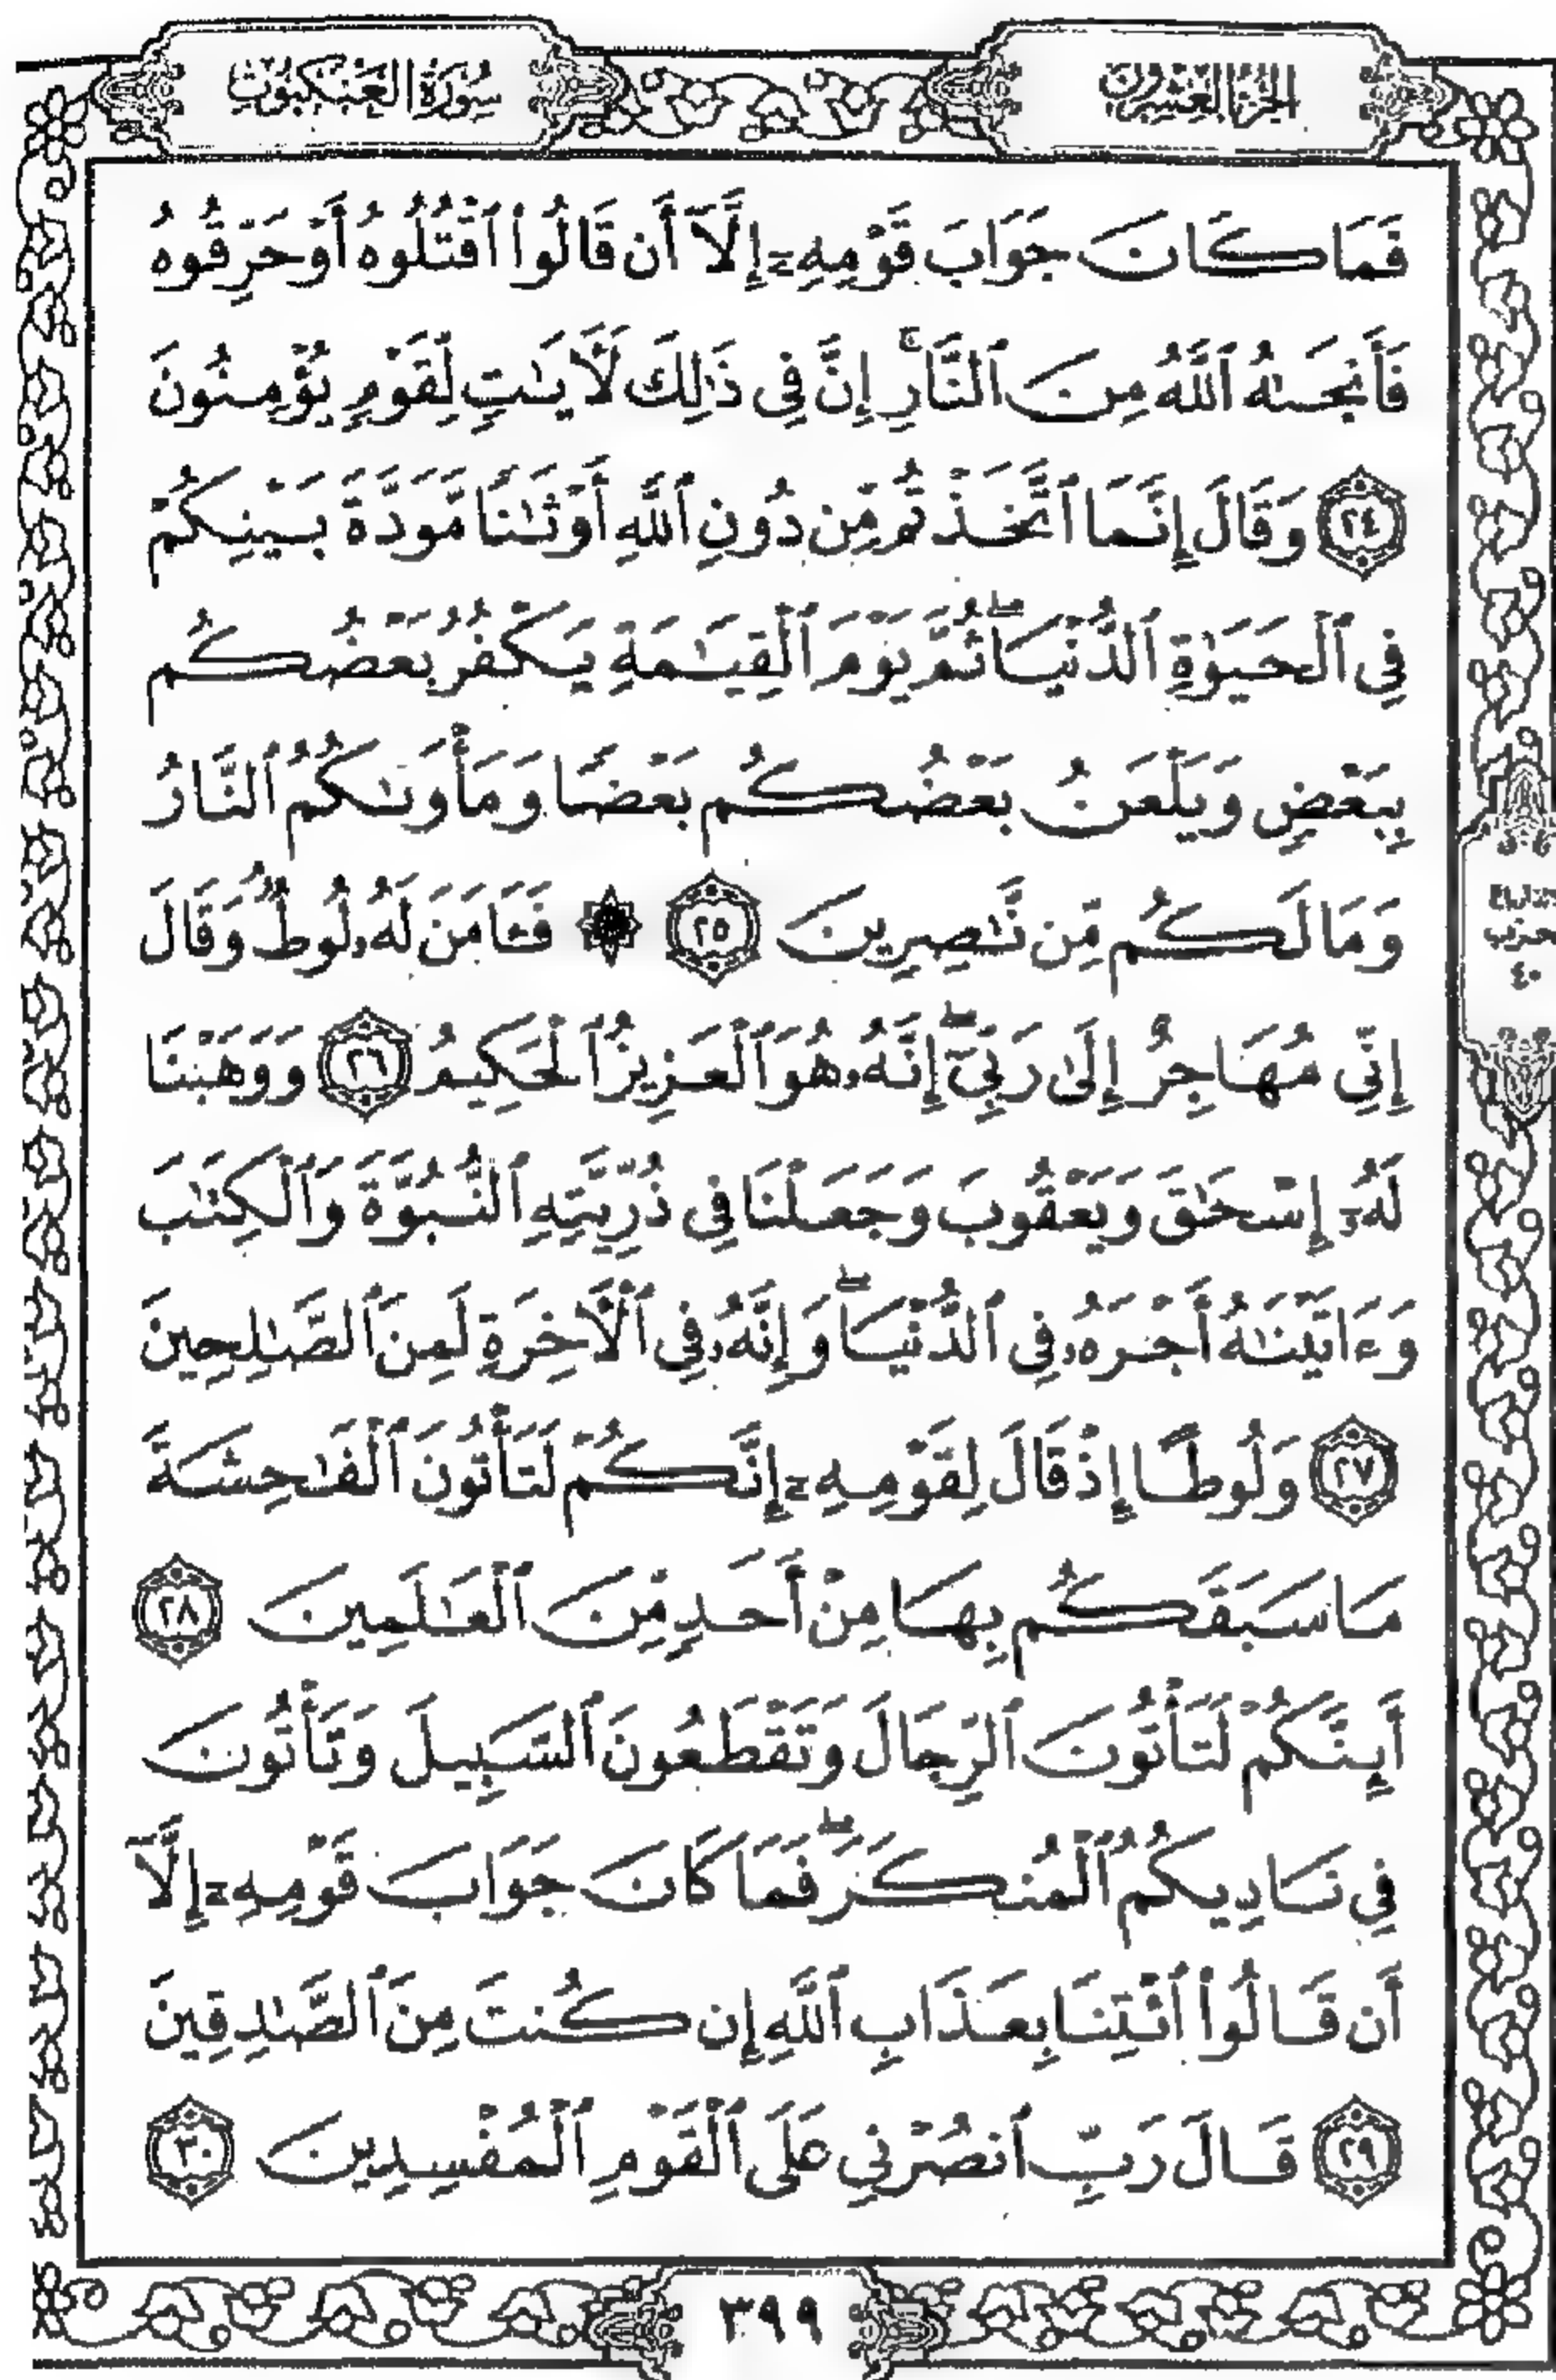 الجزء العشرون
سورة العنكبوت
فَمَا كَانَ جَوَابَ قَوْمِهِۦٓ إِلَّآ أَن قَالُوا۟ ٱقْتُلُوهُ أَوْ حَرِّقُوهُ
فَأَنجَىٰهُ ٱللَّهُ مِنَ ٱلنَّارِ ۚ إِنَّ فِى ذَٰلِكَ لَـَٔايَـٰتٍ لِّقَوْمٍ يُؤْمِنُونَ
٢٤ وَقَالَ إِنَّمَا ٱتَّخَذْتُم مِّن دُونِ ٱللَّهِ أَوْثَـٰنًا مَّوَدَّةَ بَيْنِكُمْ
فِى ٱلْحَيَوٰةِ ٱلدُّنْيَا ۖ ثُمَّ يَوْمَ ٱلْقِيَـٰمَةِ يَكْفُرُ بَعْضُكُم
بِبَعْضٍ وَيَلْعَنُ بَعْضُكُم بَعْضًا وَمَأْوَىٰكُمُ ٱلنَّارُ
وَمَا لَكُم مِّن نَّـٰصِرِينَ ٢٥ ۞ فَـَٔامَنَ لَهُۥ لُوطٌ وَقَالَ
إِنِّى مُهَاجِرٌ إِلَىٰ رَبِّىٓ ۖ إِنَّهُۥ هُوَ ٱلْعَزِيزُ ٱلْحَكِيمُ ٢٦ وَوَهَبْنَا
لَهُۥٓ إِسْحَـٰقَ وَيَعْقُوبَ وَجَعَلْنَا فِى ذُرِّيَّتِهِ ٱلنُّبُوَّةَ وَٱلْكِتَـٰبَ
وَءَاتَيْنَـٰهُ أَجْرَهُۥ فِى ٱلدُّنْيَا ۖ وَإِنَّهُۥ فِى ٱلْـَٔاخِرَةِ لَمِنَ ٱلصَّـٰلِحِينَ
٢٧ وَلُوطًا إِذْ قَالَ لِقَوْمِهِۦٓ إِنَّكُمْ لَتَأْتُونَ ٱلْفَـٰحِشَةَ
مَا سَبَقَكُم بِهَا مِنْ أَحَدٍ مِّنَ ٱلْعَـٰلَمِينَ ٢٨
أَئِنَّكُمْ لَتَأْتُونَ ٱلرِّجَالَ وَتَقْطَعُونَ ٱلسَّبِيلَ وَتَأْتُونَ
فِى نَادِيكُمُ ٱلْمُنكَرَ ۖ فَمَا كَانَ جَوَابَ قَوْمِهِۦٓ إِلَّآ
أَن قَالُوا۟ ٱئْتِنَا بِعَذَابِ ٱللَّهِ إِن كُنتَ مِنَ ٱلصَّـٰدِقِينَ
٢٩ قَالَ رَبِّ ٱنصُرْنِى عَلَى ٱلْقَوْمِ ٱلْمُفْسِدِينَ ٣٠
حزب
٤٠
٣٩٩